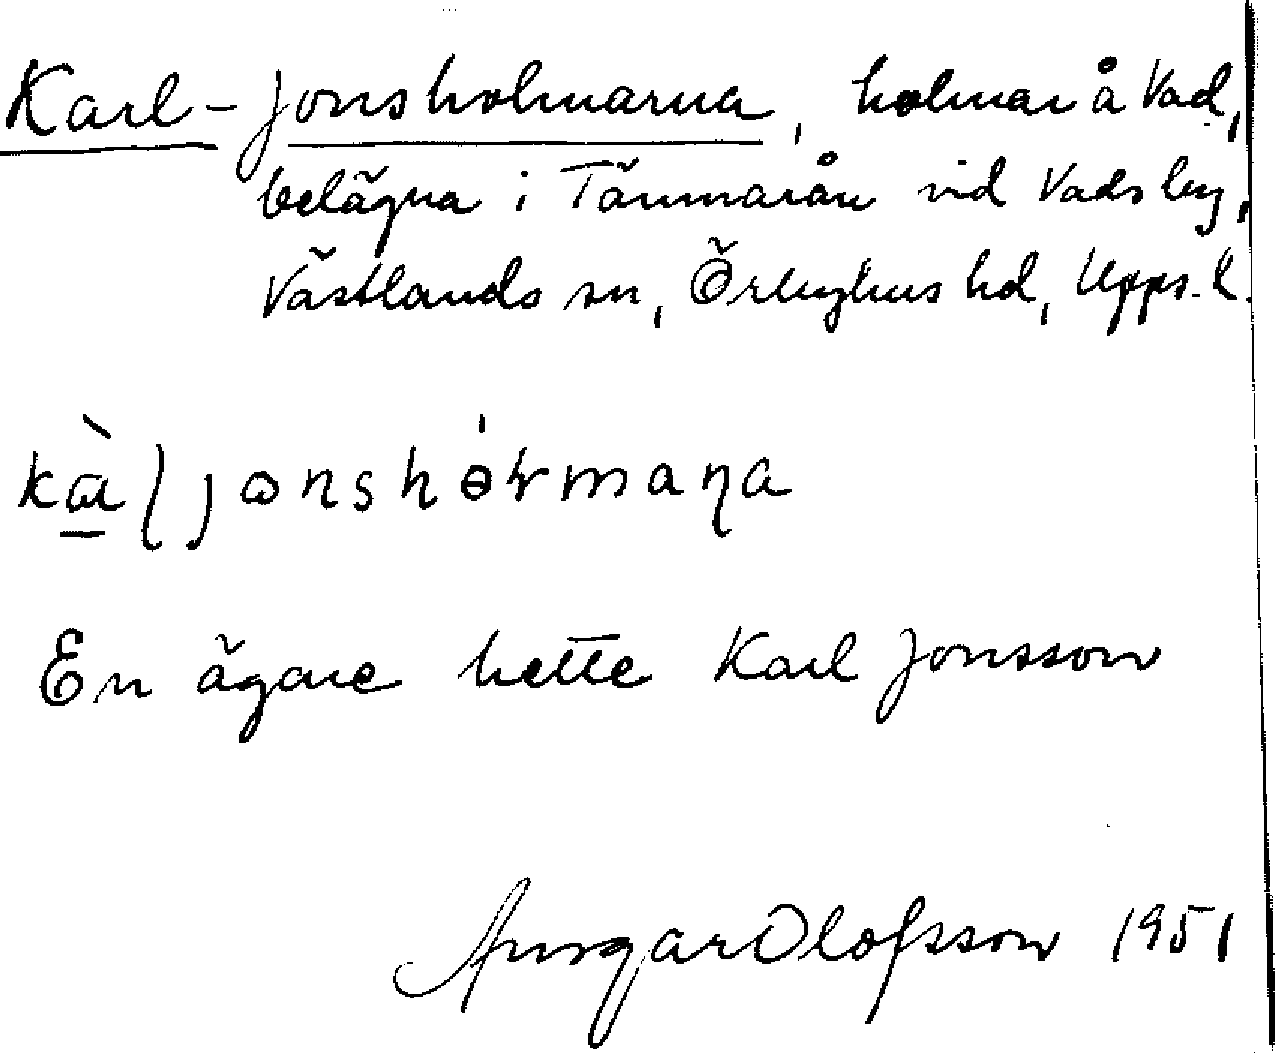 Karl-Jonsholmarna, holmar å Vad,
belägna i Tämnarån vid Vads by,
Västlands sn, Örbyhus hd, Upps. l.
kὰ̱ɭjɷnshɵ̀ɽmaɳa
En ägare hette Karl Jonsson
Ansgar Olofsson 1951